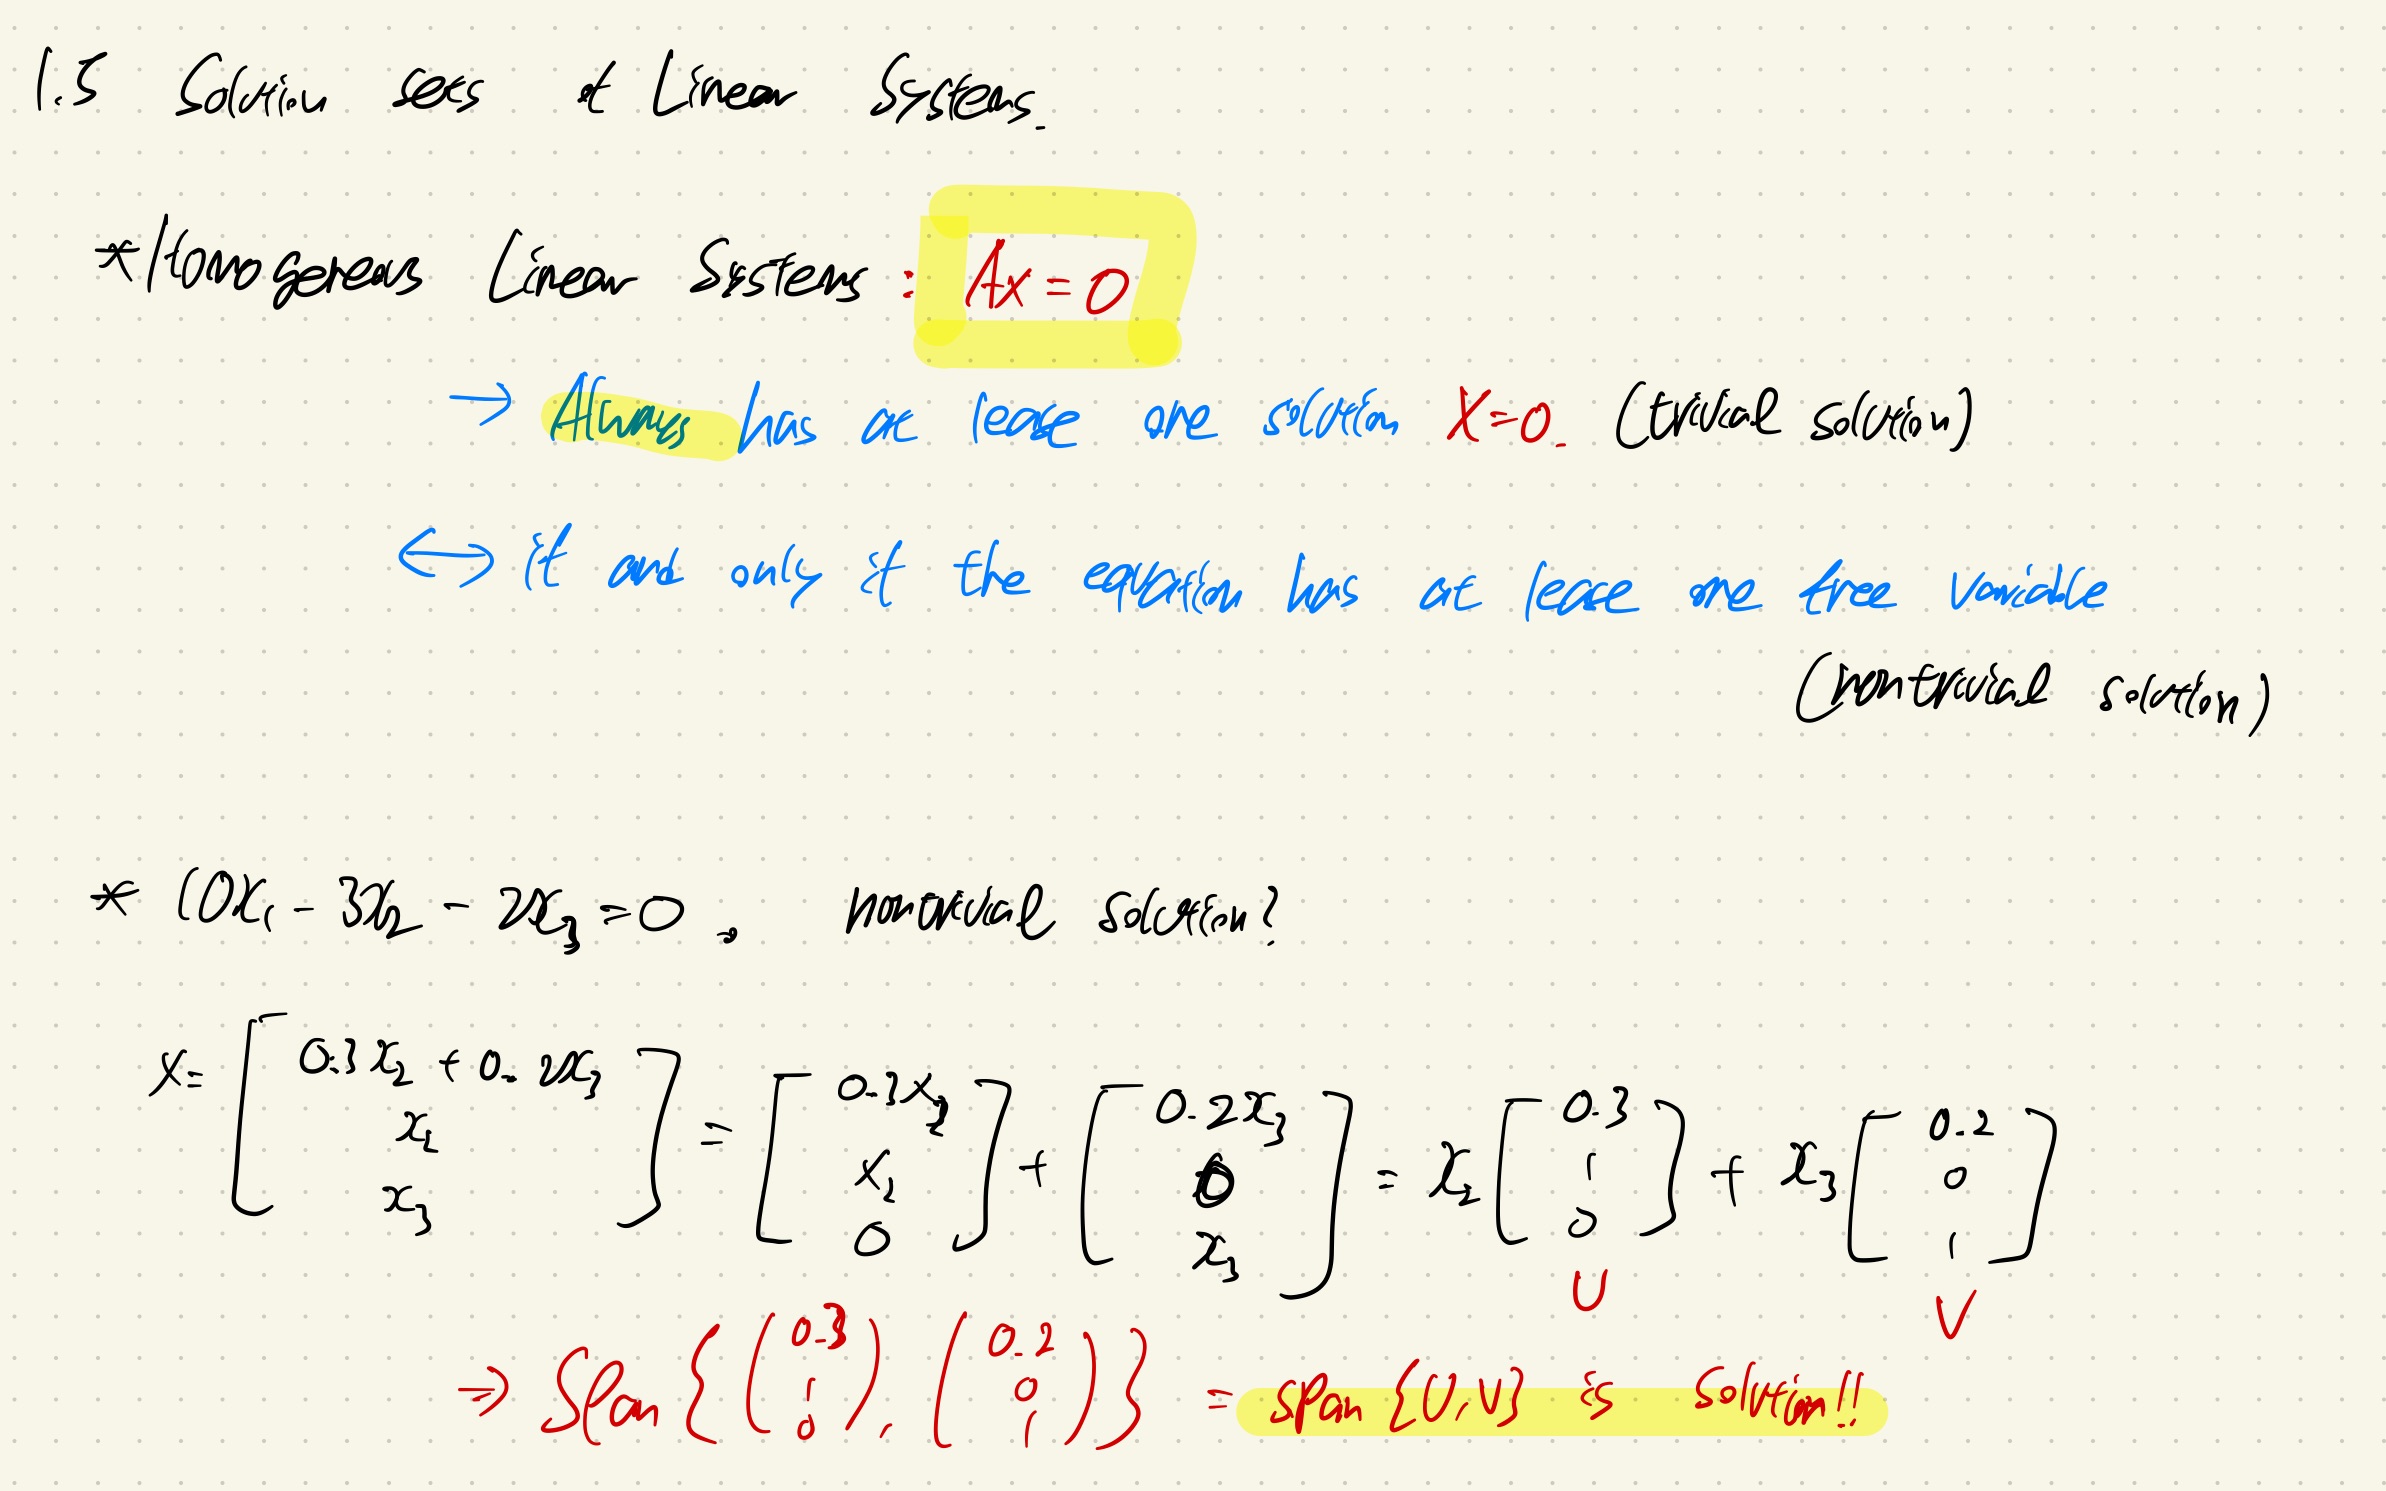 1.5 Solution sets of Linear Systems.
* Homogeneous Linear Systems : Ax = 0
→ Always has at lease one solution X=0. (trivial solution)
↔ if and only if the equation has at lease one free variable
(nontrivial solution)
* 10x₁ - 3x₂ - 2x₃ = 0 , nontrivial solution?
x = [ 0.3x₂ + 0.2x₃ ; x₂ ; x₃ ] = [ 0.3x₂ ; x₂ ; 0 ] + [ 0.2x₃ ; 0 ; x₃ ] = x₂ [ 0.3 ; 1 ; 0 ] + x₃ [ 0.2 ; 0 ; 1 ]
U V
⇒ Span { ( 0.3 ; 1 ; 0 ), ( 0.2 ; 0 ; 1 ) } = span {U, V} is solution!!